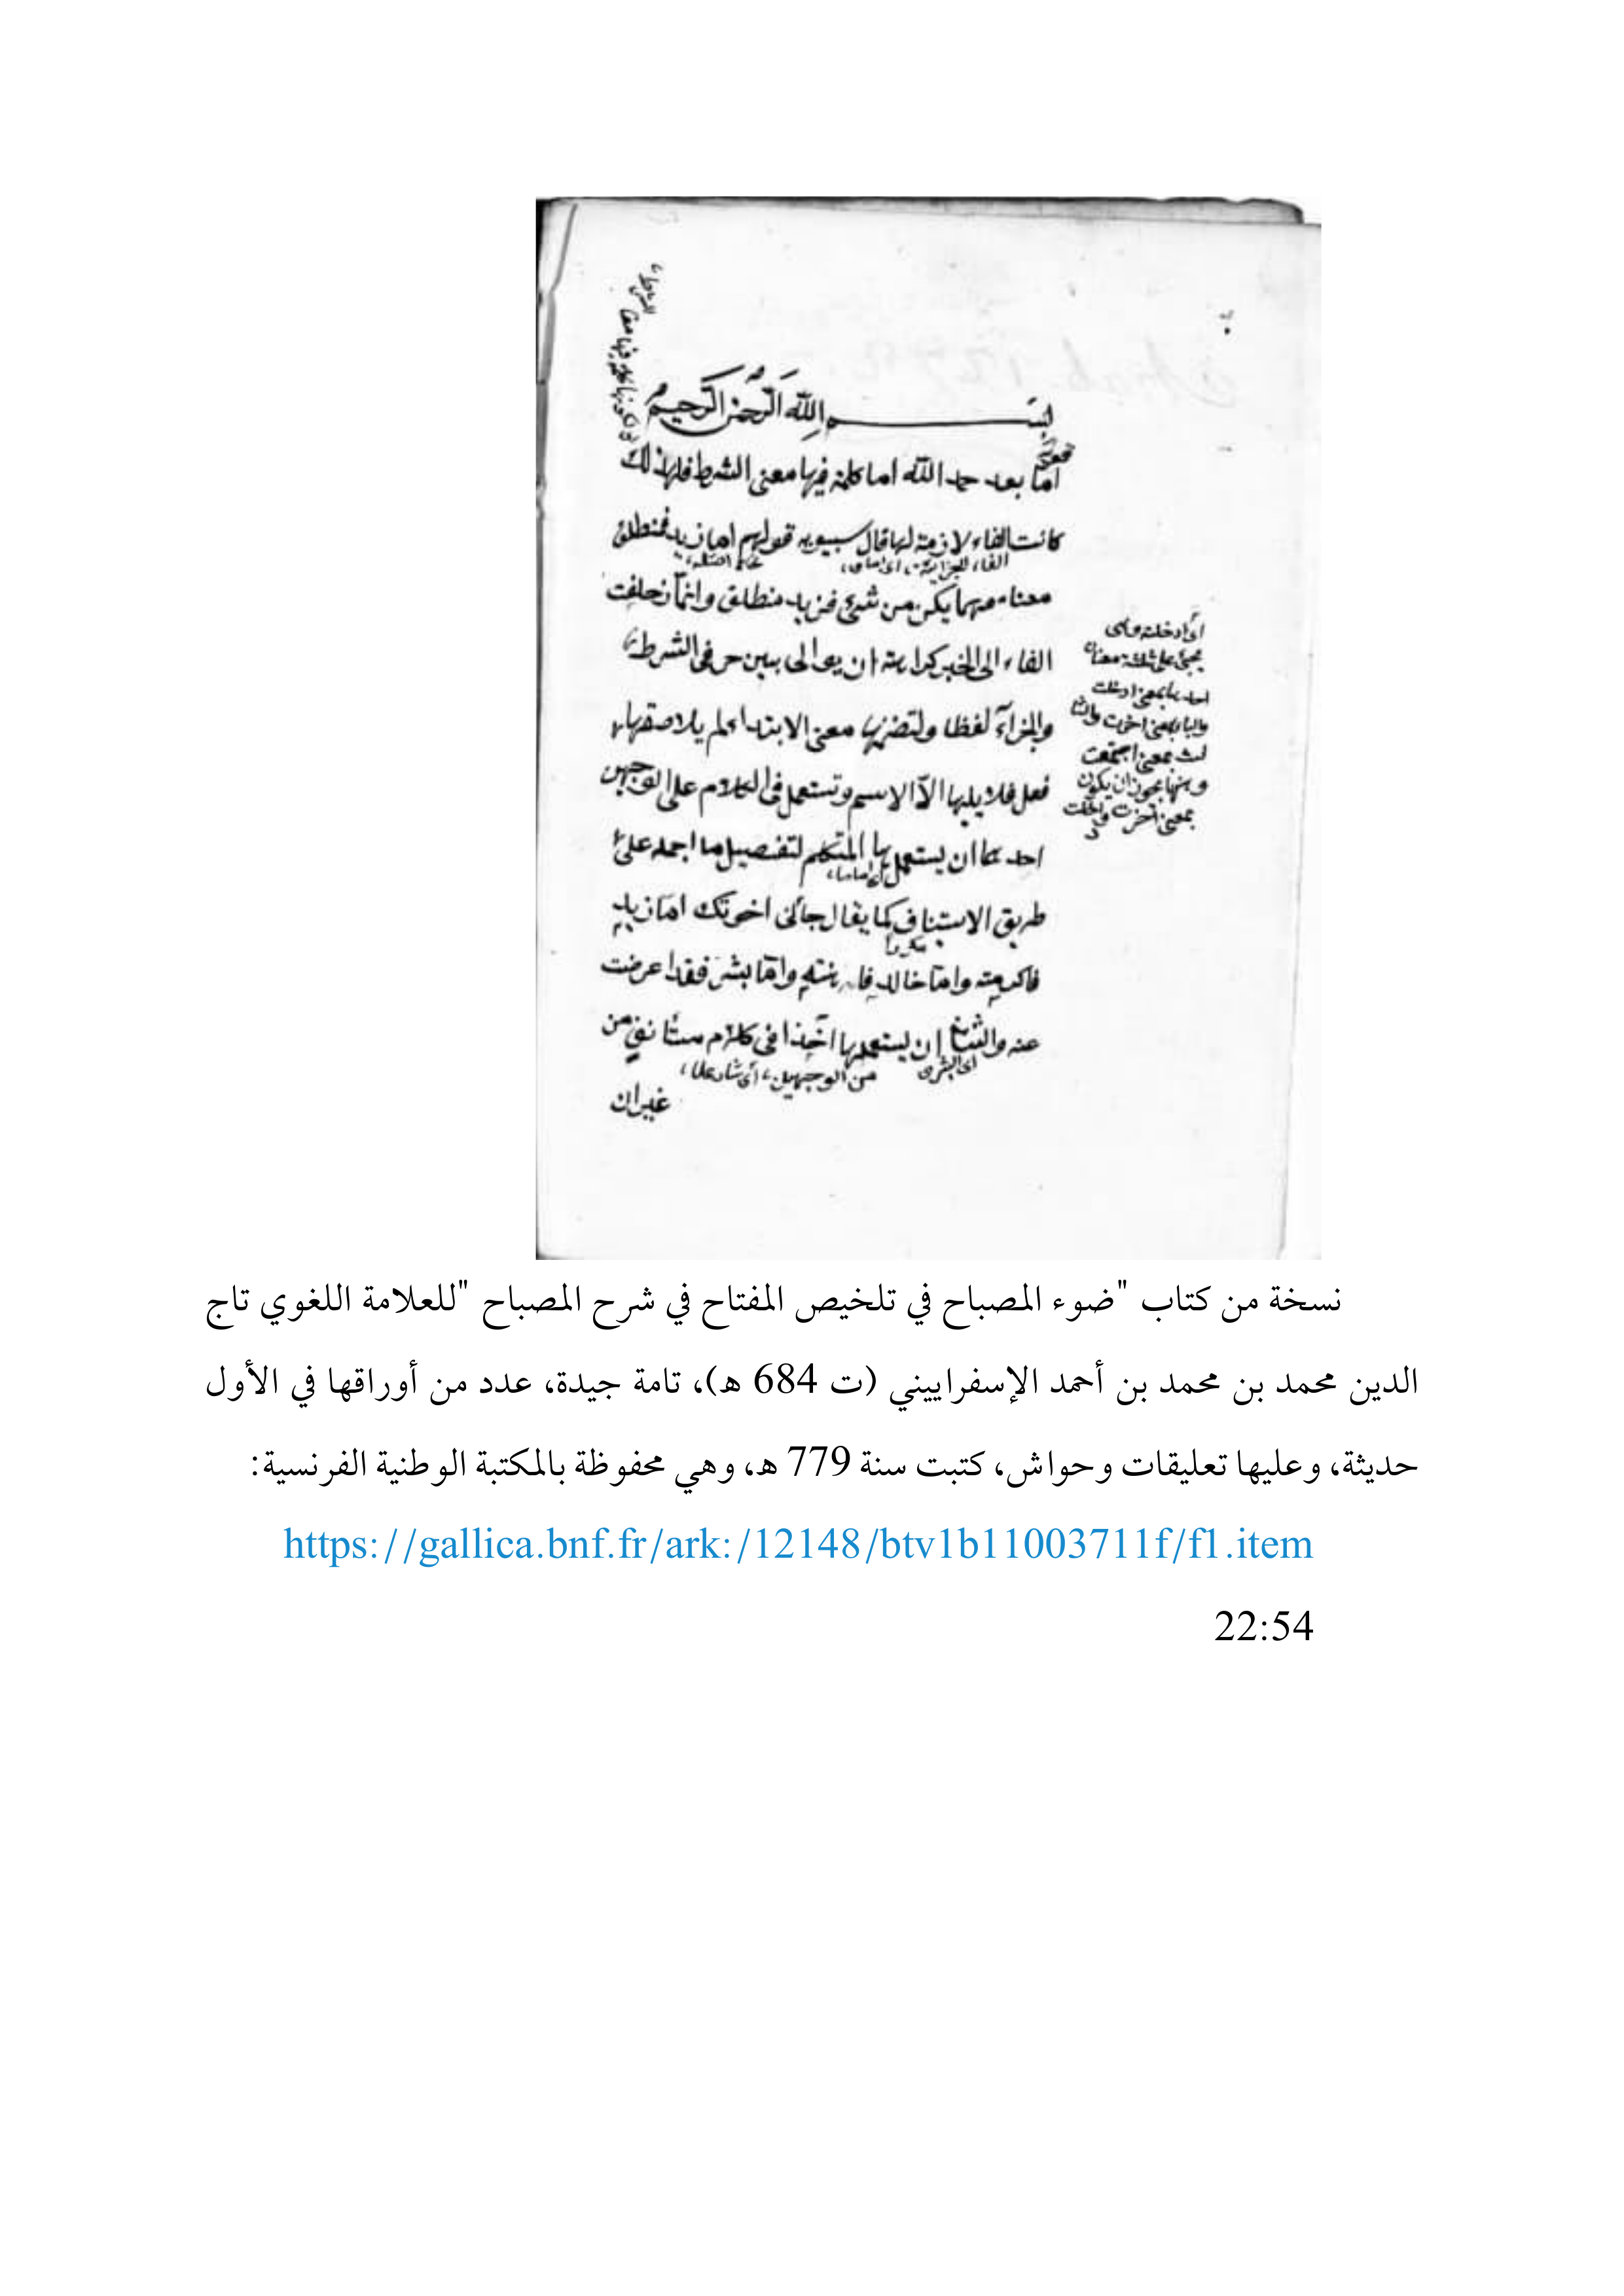 بسم الله الرحمن الرحيم
اما بعد حمد الله اما كلمة فيها معنى الشرط فلهذلك
كانت الفاء لازمة لها قال سيبويه قولهم اما زيد فمنطلق
الفاء الجزائية
معناه مهما يكن من شئ فزيد منطلق وانما زحلفت
الفاء الى الخبر كراهة ان يوالى بين حرفى الشرط
والجزآء لفظا ولتضمنها معنى الابتداء لم يلاصقها
فعل فلا يليها الا الاسم وتستعمل فى الكلام على الوجهين
احدهما ان يستعملها المتكلم لتفصيل ما اجمله على
طريق الاستيناف كما يقال جائنى اخوتك اما زيد
فاكرمته واما خالد فاهنته واما بشر فقد اعرضت
عنه والثانى ان يستعملها آخذا فى كلام مستأنف من
من الوجهين
غير ان
اى ادخلت
احدها بمعنى ادخلت
لث بمعنى اجتمعت
نسخة من كتاب "ضوء المصباح في تلخيص المفتاح في شرح المصباح "للعلامة اللغوي تاج
الدين محمد بن محمد بن أحمد الإسفراييني (ت 684 ه)، تامة جيدة، عدد من أوراقها في الأول
حديثة، وعليها تعليقات وحواش، كتبت سنة 779 ه، وهي محفوظة بالمكتبة الوطنية الفرنسية:
https://gallica.bnf.fr/ark:/12148/btv1b11003711f/f1.item
22:54